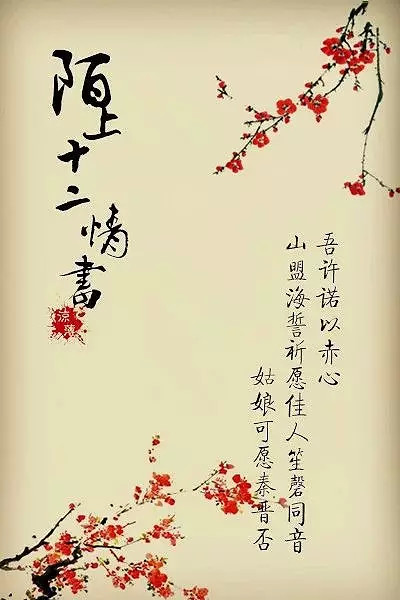 陌上十二情書
吾许诺以赤心
山盟海誓祈愿佳人笙磬同音
姑娘可愿秦晋否